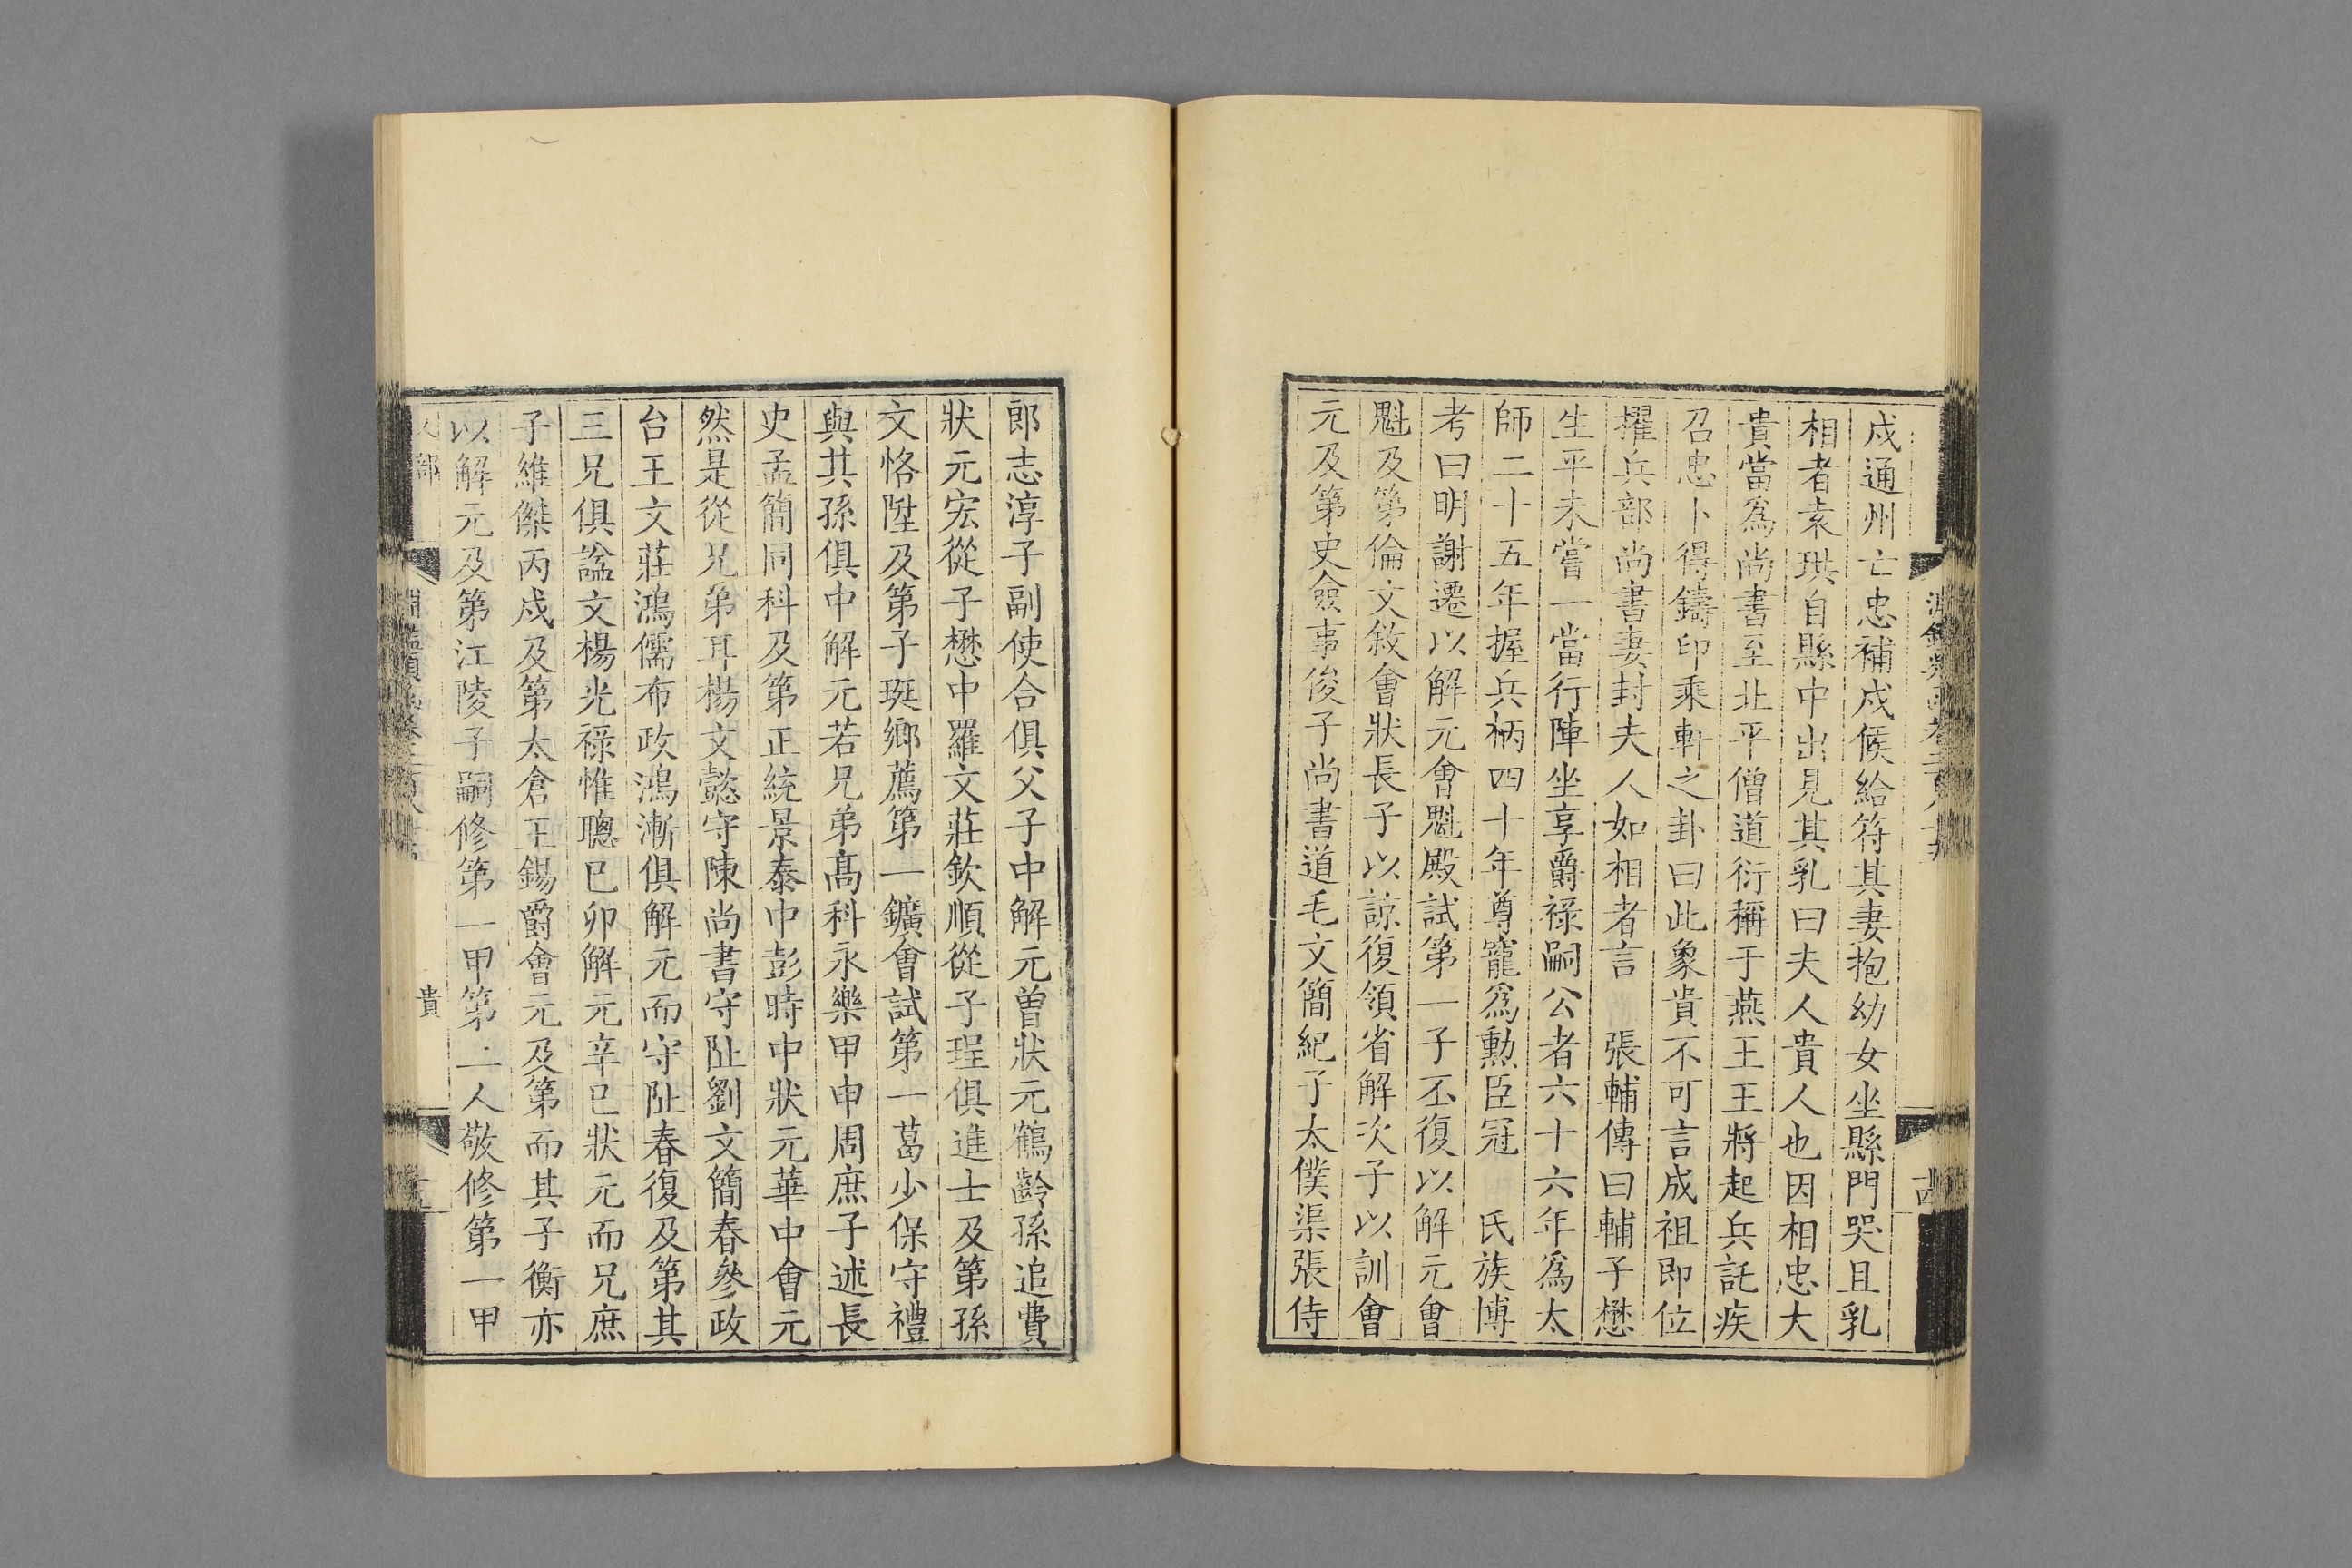 戍通州亡忠補戍候給符其妻抱幼女坐縣門哭且乳
相者袁珙自縣中出見其乳曰夫人貴人也因相忠大
貴當爲尚書至北平僧道衍稱于燕王王將起兵託疾
召忠卜得鑄印乘軒之卦曰此象貴不可言成祖即位
擢兵部尚書妻封夫人如相者言 張輔傳曰輔子懋
生平未嘗一當行陣坐享爵祿嗣公者六十六年爲太
師二十五年握兵柄四十年尊寵爲勳臣冠 氏族博
考曰明謝遷以解元會魁殿試第一子丕復以解元會
魁及第倫文敘會狀長子以諒復領省解次子以訓會
元及第史僉事俊子尚書道毛文簡紀子太僕渠張侍
郎志淳子副使合俱父子中解元曾狀元鶴齡孫追費
狀元宏從子懋中羅文莊欽順從子珵俱進士及第孫
文恪陞及第子珽鄉薦第一鑛會試第一葛少保守禮
與其孫俱中解元若兄弟髙科永樂甲申周庶子述長
史孟簡同科及第正統景泰中彭時中狀元華中會元
然是從兄弟耳楊文懿守陳尚書守阯劉文簡春參政
台王文莊鴻儒布政鴻漸俱解元而守阯春復及第其
三兄俱諡文楊光祿惟聰己卯解元辛巳狀元而兄庶
子維傑丙戍及第太倉王錫爵會元及第而其子衡亦
以解元及第江陵子嗣修第一甲第二人敬修第一甲
部
貴